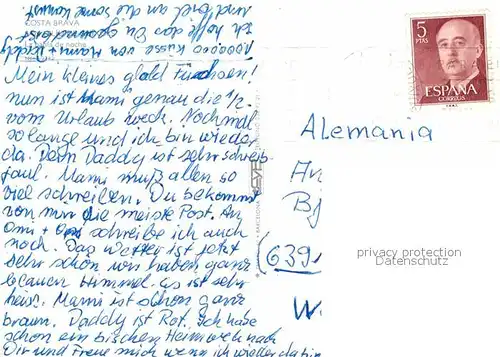 COSTA BRAVA
de noche
5
PTAS
ESPAÑA
CORREOS
Mein kleines Gold
nun ist Mami genau die 1/2
vom Urlaub weck. Nochmal
solange und ich bin wieder
da. Dein Daddy ist sehr schreib
faul. Mami muß allen so
viel schreiben. Du bekommst
von mir die meiste Post. An
Omi + Opa schreibe ich auch
noch. Das Wetter ist jetzt
sehr schön wir haben ganz
blauen Himmel. es ist sehr
heiß. Mami ist schon ganz
braun. Daddy ist Rot. Ich habe
schon ein bischen Heimweh nach
Dir und freue mich wenn ich wieder da bin
1000000 Küsse von Mami + Daddy
Ich hoffe das Du
und viel an die Sonne kommst.
Alemania
(639
privacy protection
Datenschutz